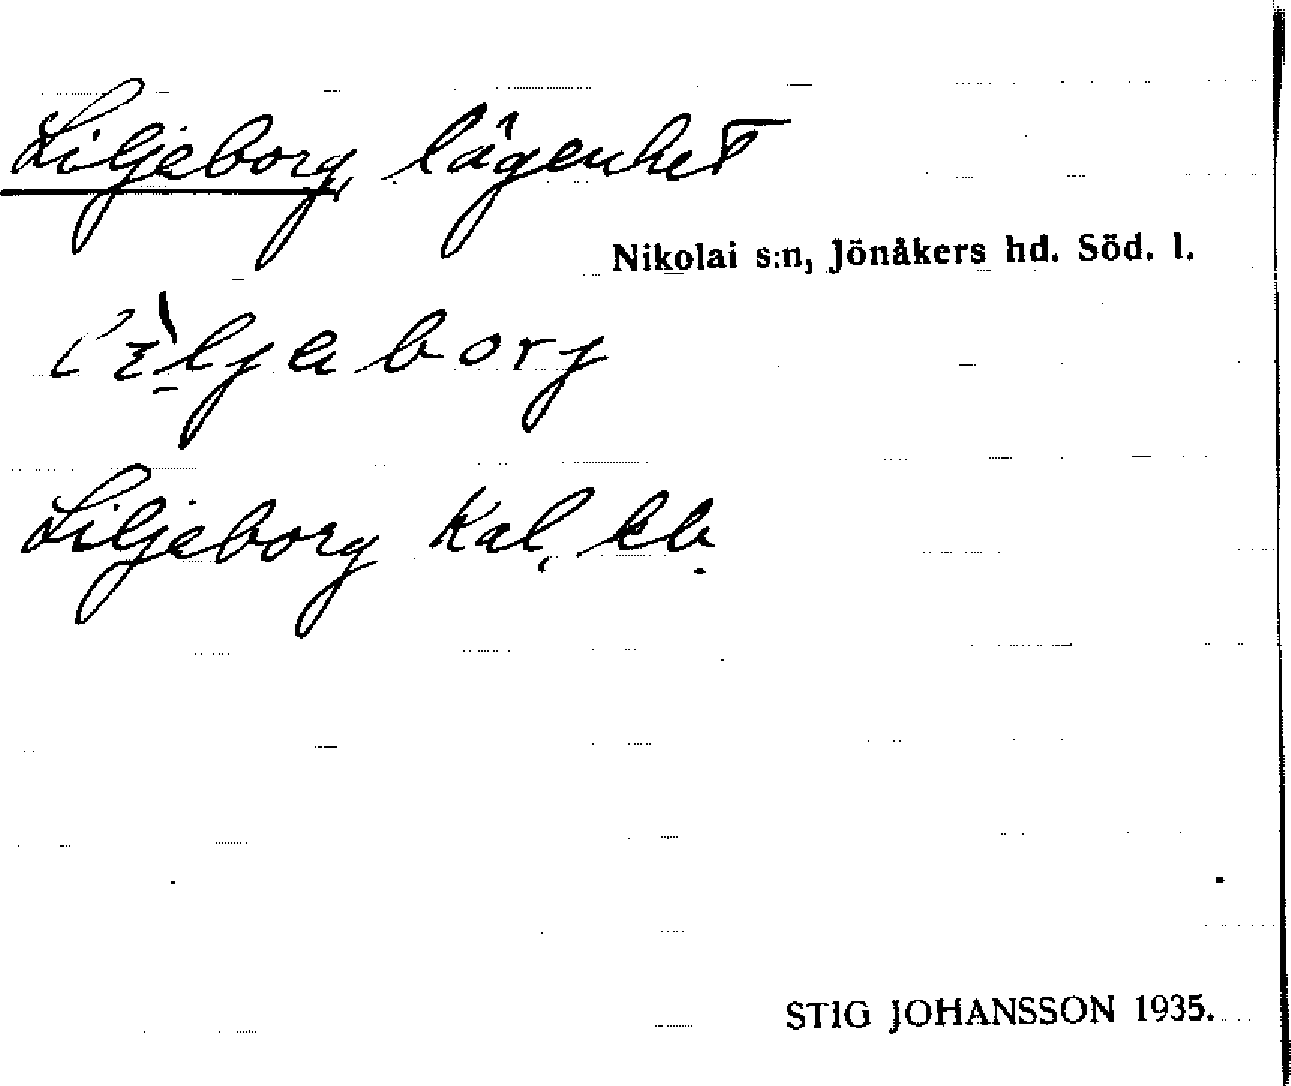 Liljeborg, lägenhet
Nikolai s:n, Jönåkers hd. Söd. l.
Liljeborg Kal, kb.
STIG JOHANSSON 1935.